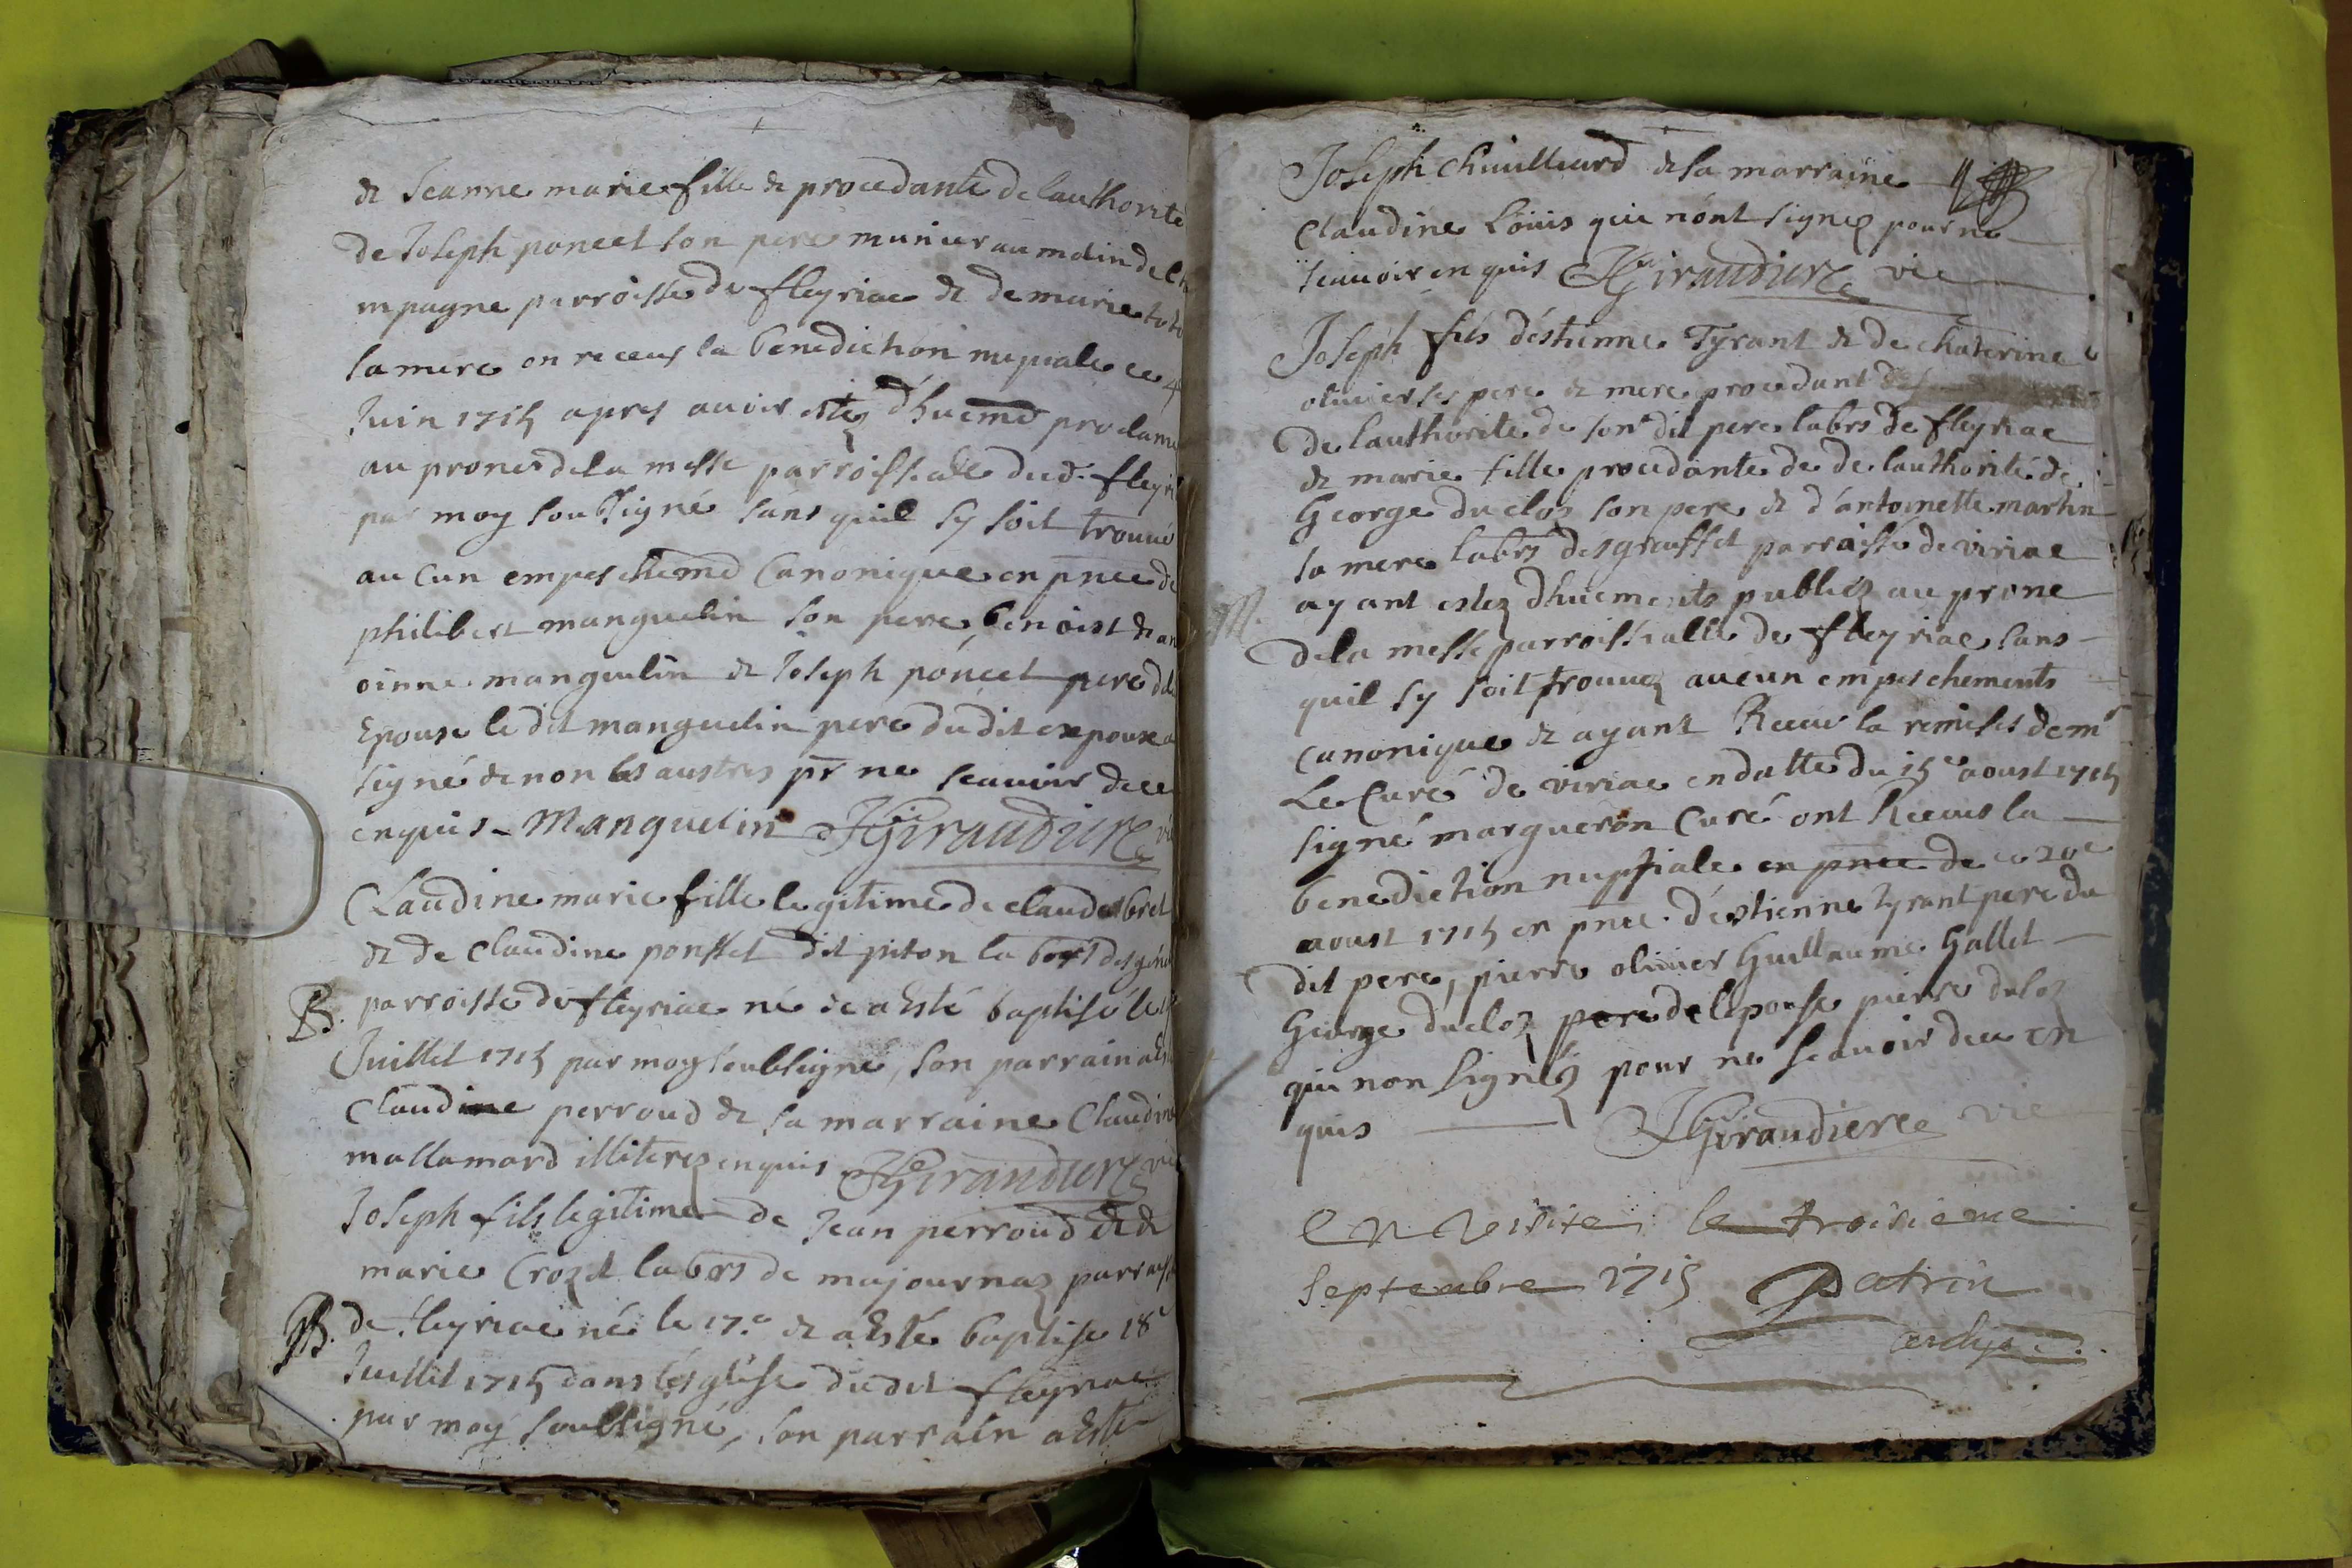 & Jeanne marie fille & procedante de lauthorité
de Joseph poncet son pere munier au molin de
mpagne parroisse de fleyriac & de marie
sa mere on receus la benediction nuptiale ce 4
Juin 1715 apres avoir estez dhuemd proclame
au prone de la messe parroissialle dud. fleyri
par moy soubsigné sans quil sy soit trouué
aucun empeschemd Canonique en pnce de
philibert manguelin son pere, benoist & an
oinne manguelin & Joseph poncet pere dela
Epouse le dit manguelin pere du dit expoux a
signé & non les austres pr ne scauoir de ce
enquis - Manguelin JGiraudiere vic
Claudine marie fille legitime de claude bret
& de Claudine ponsset dit piton labors des
B. parroisse de fleyriac né & a Esté baptisé le
Juillet 1715 par moy soubsigné, son parrain a Es
Claudine perroud & sa marraine Claudine
mallamard illiterez enquis JGiraudiere vic
Joseph fils legitime de Jean perroud & de
marie Crozet labors de majournaz parroisse
B. de fleyriac né le 17.e & a Esté baptise 18e
Juillet 1715 dans lesglise du dit fleyriac
par moy soubsigné, son parrain a Esté
Joseph Chuilliard & sa marraine
Claudine Loüis qui nont signez pour ne
scauoir enquis JGiraudiere vic
Joseph fils déstienne Tyrant & de chaterine
oliuier ses pere & mere procedant
de lauthorite de son dit pere labrs de fleyriac
& marie fille procedante de de lauthorité de
George du cloz son pere & d'antoinette martin
sa mere labrs des greffet parroisse de viriac
M. ayant estez dhuements publiez au prone
dela messe parroissialle de fleyriac sans
quil sy soit trouuez aucun empeschements
canonique & ayant Receu la remises de mr
Le Curé de viriac en datte du 15e aoust 1715
signé margueron Curé ont Receus la
benediction nuptiale en pnce de ce 20e
aoust 1715 en pnce. déstienne tyrant pere du
dit pere, pierre oliuier Guillaume Gallet
George ducloz pere de lepouse pierre duloz
qui non signéz pour ne scauoir de ce en
quis JGiraudiere vic
en visite le troisieme
septembre 1715 Patrin
archip.